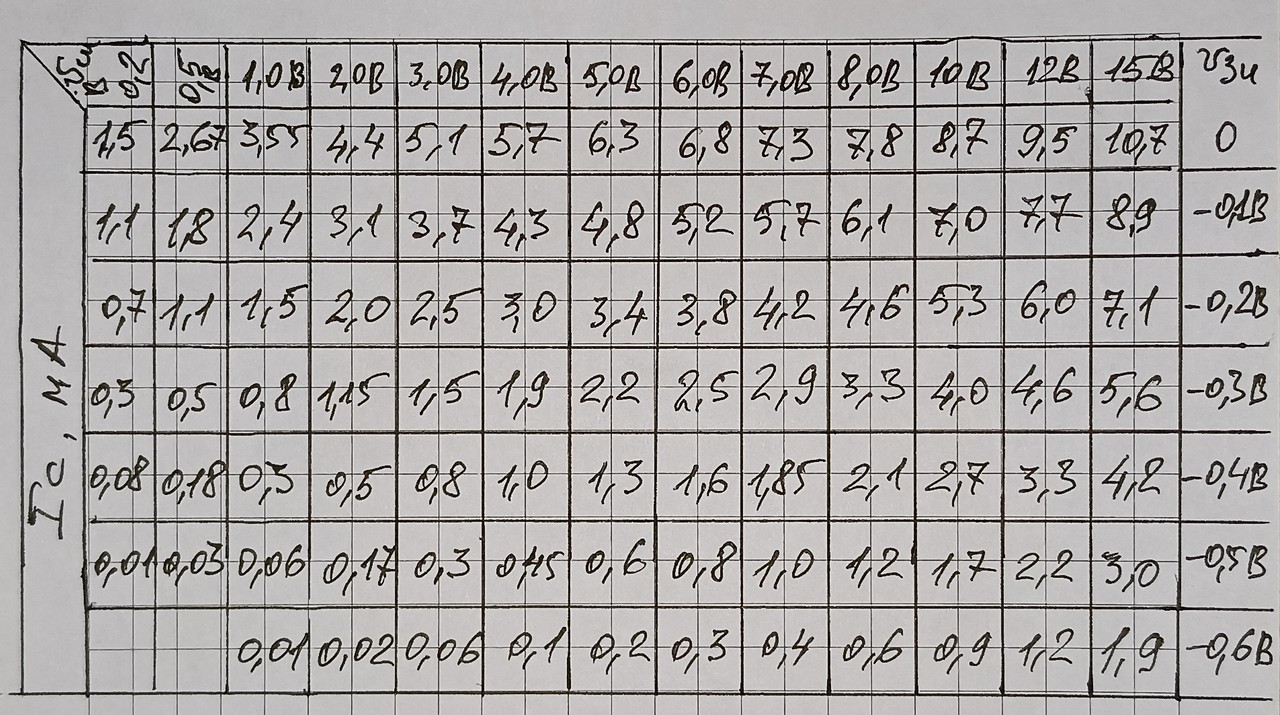 0,2 В 0,5 В 1,0В 2,0В 3,0В 4,0В 5,0В 6,0В 7,0В 8,0В 10В 12В 15В Uзи
1,5 2,67 3,55 4,4 5,1 5,7 6,3 6,8 7,3 7,8 8,7 9,5 10,7 0
1,1 1,8 2,4 3,1 3,7 4,3 4,8 5,2 5,7 6,1 7,0 7,7 8,9 -0,1В
0,7 1,1 1,5 2,0 2,5 3,0 3,4 3,8 4,2 4,6 5,3 6,0 7,1 -0,2В
0,3 0,5 0,8 1,15 1,5 1,9 2,2 2,5 2,9 3,3 4,0 4,6 5,6 -0,3В
0,08 0,18 0,3 0,5 0,8 1,0 1,3 1,6 1,85 2,1 2,7 3,3 4,2 -0,4В
0,01 0,03 0,06 0,17 0,3 0,45 0,6 0,8 1,0 1,2 1,7 2,2 3,0 -0,5В
0,01 0,02 0,06 0,1 0,2 0,3 0,4 0,6 0,9 1,2 1,9 -0,6В
Ic, мА